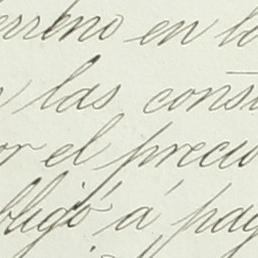 erreno en lo
las cons
or el preci
bligó á pag